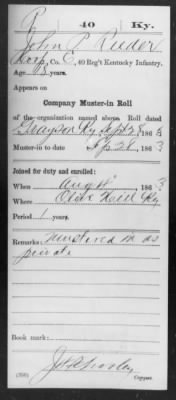 R 40 Ky.
John P. Reeder
Corp, Co. C, 40 Reg't Kentucky Infantry.
Age years.
Appears on
Company Muster-in Roll
of the organization named above. Roll dated
Grayson Ky Sept 28, 1863
Muster-in to date Sep 28, 1863
Joined for duty and enrolled:
When Aug 1, 1863
Where Olive Hill Ky
Period 1 years.
Remarks: Mustered in as
private
Book mark:
(356)
Copyist.